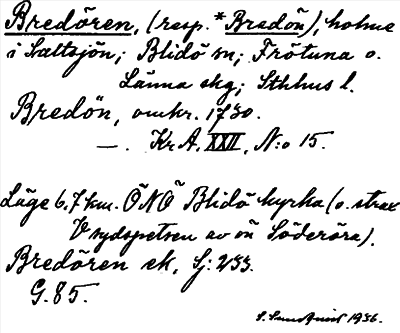 Bredören, (resp. *Bredön), holme
i Saltsjön; Blidö sn; Frötuna o.
Länna skg; Sthlms l.
Bredön, omkr. 1730.
—. Kr A. XXII, N:o 15.
Läge 6,7 km. ÖNÖ Blidö kyrka (o. strax
V sydspetsen av ön Söderöra).
Bredören ek. Sj: 233.
G. 85.
S. Sundqvist 1936.